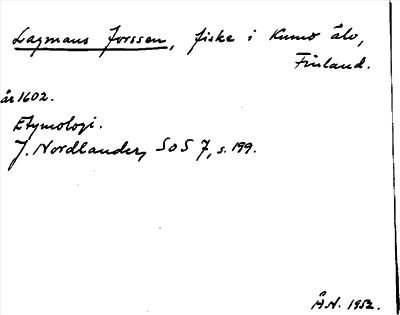 Lagmans Forssen, fiske i Kumo älv,
Finland.
år 1602.
Etymologi.
J. Nordlander, SoS 7, s. 199.
Å.N. 1952.